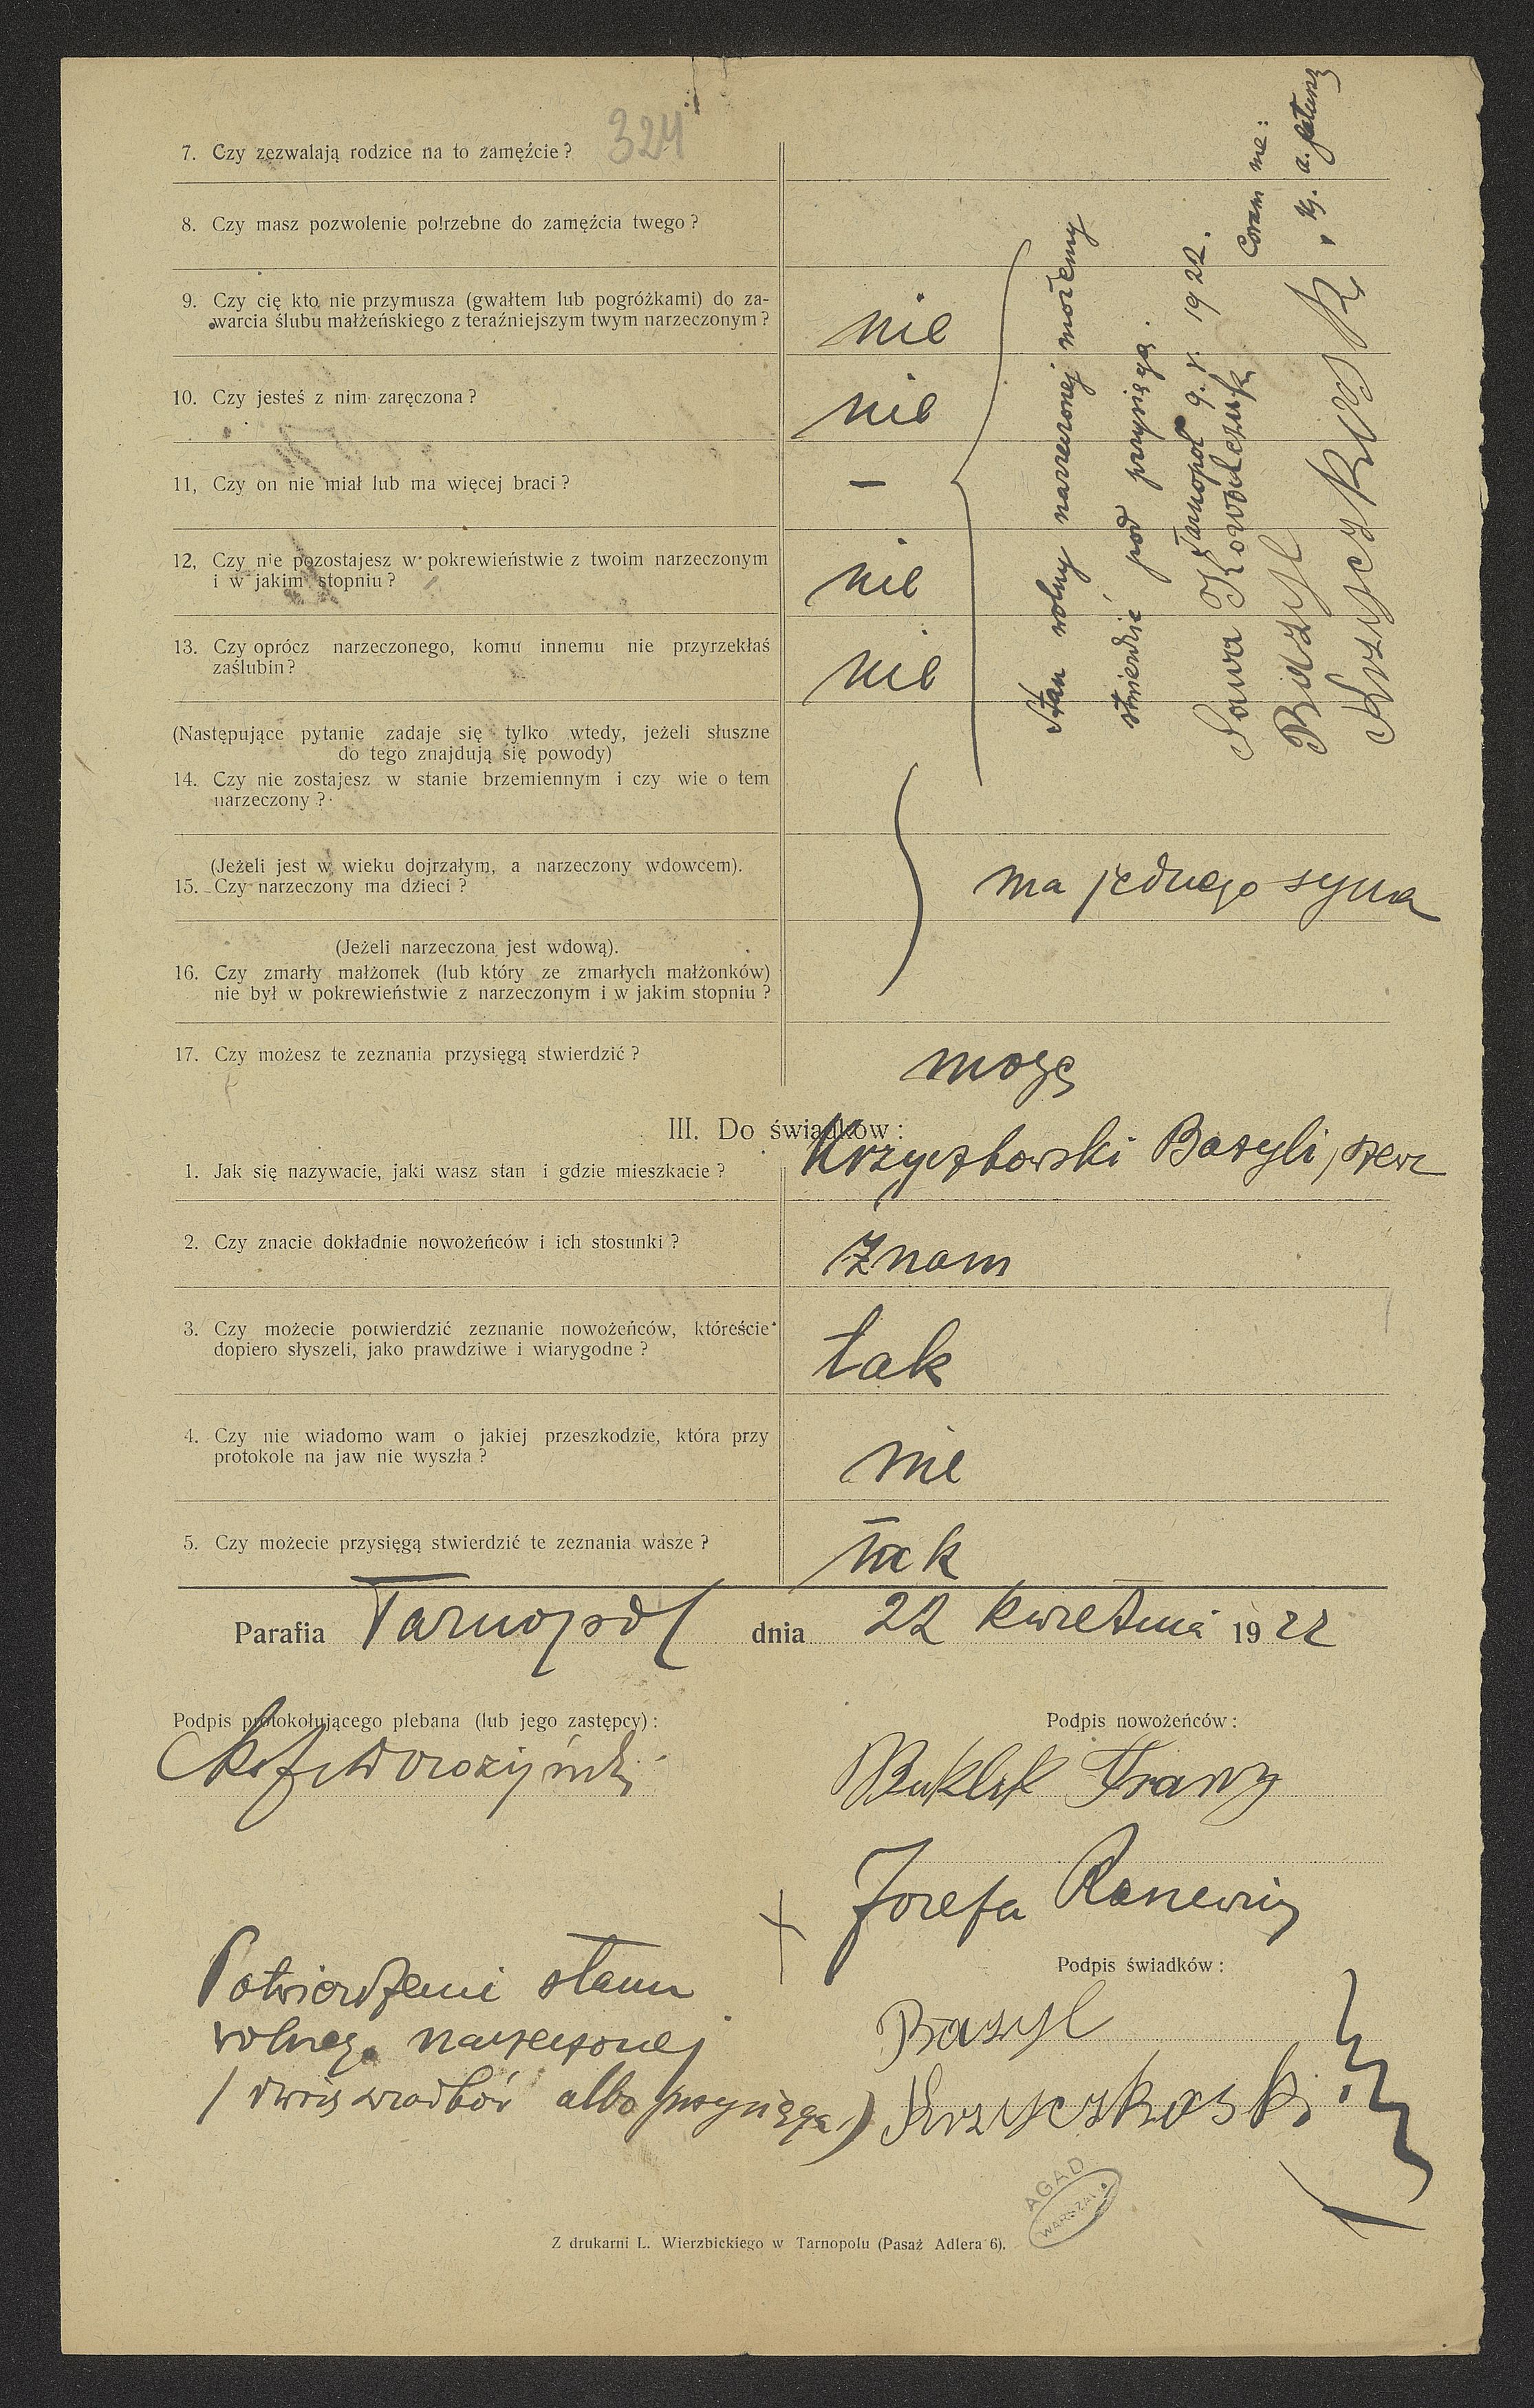 324
7. Czy zezwalają rodzice na to zamęźcie?
8. Czy masz pozwolenie potrzebne do zamęźcia twego?
9. Czy cię kto nie przymusza (gwałtem lub pogróżkami) do za-
warcia ślubu małżeńskiego z teraźniejszym twym narzeczonym?
nie
10. Czy jesteś z nim zaręczona?
nie
11, Czy on nie miał lub ma więcej braci?
–
12, Czy nie pozostajesz w pokrewieństwie z twoim narzeczonym
i w jakim stopniu?
nie
13. Czy oprócz narzeczonego, komu innemu nie przyrzekłaś
zaślubin?
nie
Stan wolny narzeczonej możemy
stwierdzić pod przysięgą.
Tarnopol 9. V. 1922.
Sawa Kowalczuk
Bazyl
Krzyczkosk
Coram me:
(Następujące pytanie zadaje się tylko wtedy, jeżeli słuszne
do tego znajdują się powody)
14. Czy nie zostajesz w stanie brzemiennym i czy wie o tem
narzeczony?
(Jeżeli jest w wieku dojrzałym, a narzeczony wdowcem).
15. Czy narzeczony ma dzieci?
ma jednego syna
(Jeżeli narzeczona jest wdową).
16. Czy zmarły małżonek (lub który ze zmarłych małżonków)
nie był w pokrewieństwie z narzeczonym i w jakim stopniu?
17. Czy możesz te zeznania przysięgą stwierdzić?
mogę
III. Do świadków:
1. Jak się nazywacie, jaki wasz stan i gdzie mieszkacie?
Krzyczkowski Bazyli, szewc
2. Czy znacie dokładnie nowożeńców i ich stosunki?
znam
3. Czy możecie potwierdzić zeznanie nowożeńców, któreście
dopiero słyszeli, jako prawdziwe i wiarygodne?
tak
4. Czy nie wiadomo wam o jakiej przeszkodzie, która przy
protokole na jaw nie wyszła?
nie
5. Czy możecie przysięgą stwierdzić te zeznania wasze?
tak
Parafia Tarnopol dnia 22 kwietnia 1922
Podpis protokołującego plebana (lub jego zastępcy):
Podpis nowożeńców:
Buklak Franz
Józefa
Podpis świadków:
Bazyl
Krzyczkoski
Potwierdzenie stanu
wolnego narzeczonej
/ dwóch świadków albo przysięga)
AGAD
WARSZAWA
Z drukarni L. Wierzbickiego w Tarnopolu (Pasaż Adlera 6).